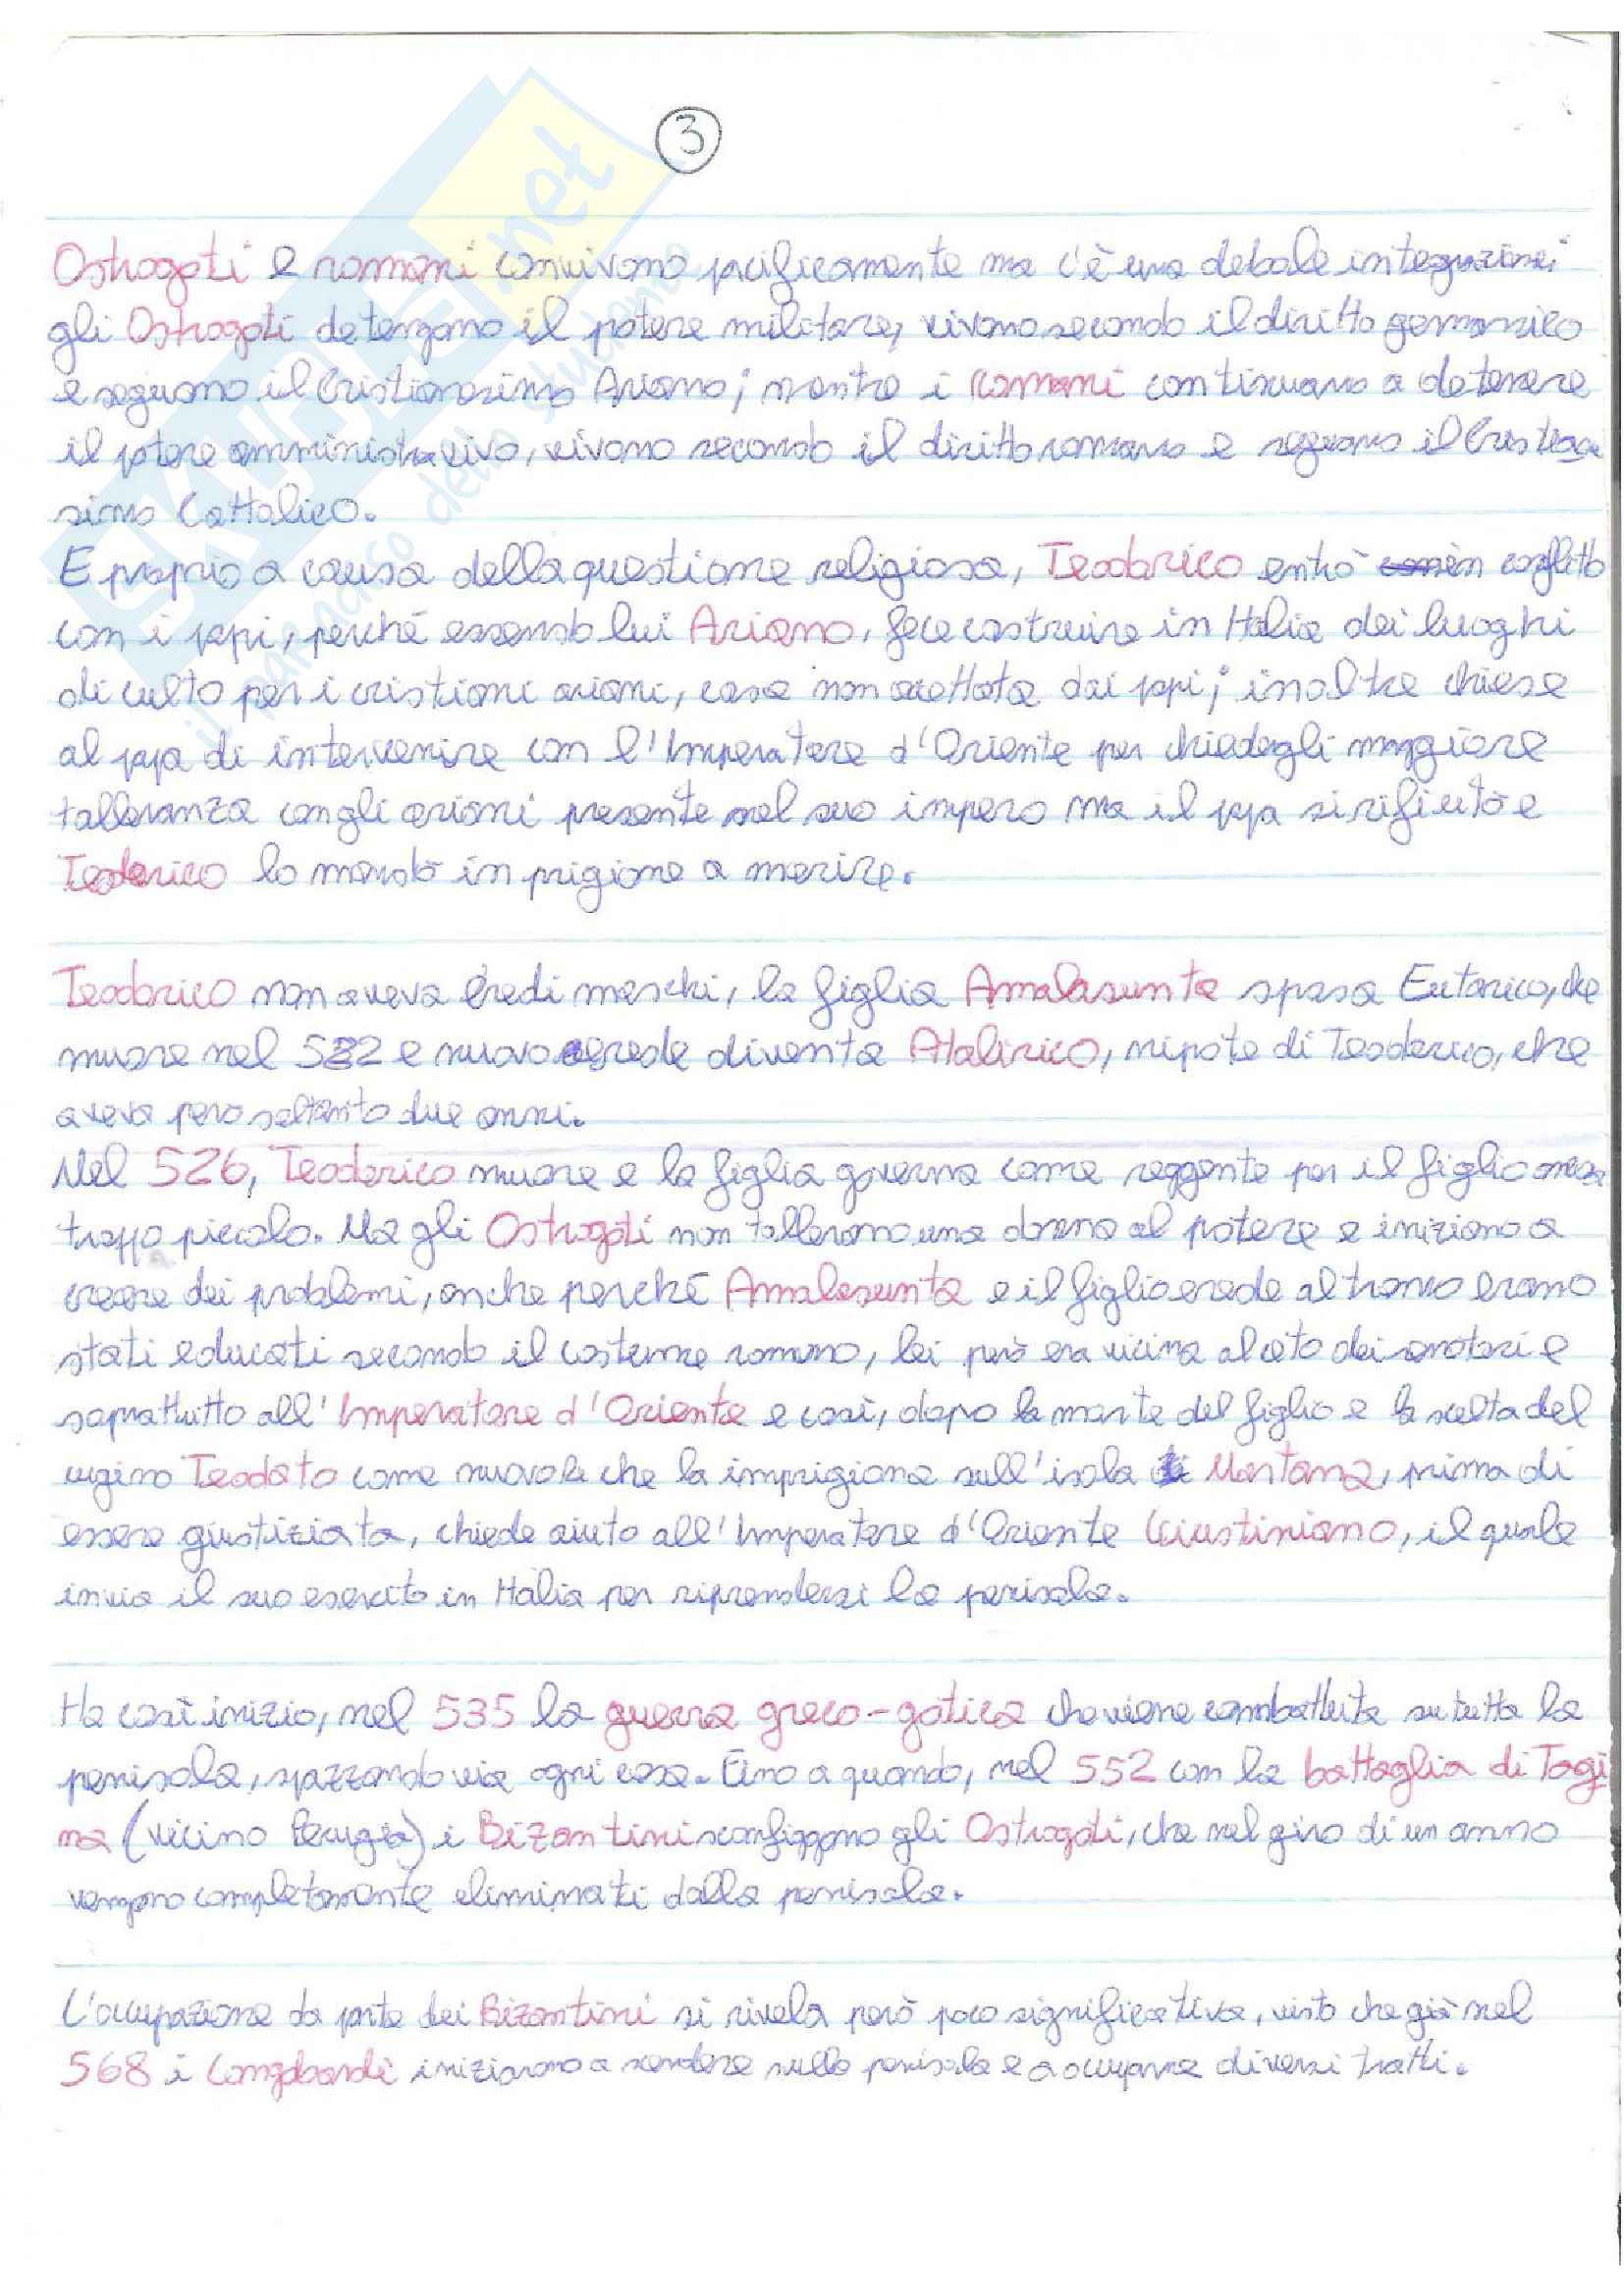 3
Ostrogoti e romani convivono pacificamente ma c'è una debole integrazione:
gli Ostrogoti detengono il potere militare, vivono secondo il diritto germanico
e seguono il Cristianesimo Ariano; mentre i Romani continuano a detenere
il potere amministrativo, vivono secondo il diritto romano e seguono il Cristiane
simo Cattolico.
E proprio a causa della questione religiosa, Teodorico entrò in conflitto
con i papi, perché essendo lui Ariano, fece costruire in Italia dei luoghi
di culto per i cristiani ariani, cosa non accettata dai papi; inoltre chiese
al papa di intervenire con l'Imperatore d'Oriente per chiedegli maggiore
tolleranza con gli ariani presente nel suo impero ma il papa si rifiutò e
Teodorico lo mandò in prigione a morire.
Teodorico non aveva eredi maschi, la figlia Amalasunta sposa Eutarico, che
muore nel 522 e nuovo erede diventa Atalirico, nipote di Teoderico, che
aveva però soltanto due anni.
Nel 526, Teoderico muore e la figlia governa come reggente per il figlio ancora
troppo piccolo. Ma gli Ostrogoti non tollerano una donna al potere e iniziano a
creare dei problemi, anche perché Amalasunta e il figlio erede al trono erano
stati educati secondo il costume romano, lei però era vicina al ceto dei senatori e
soprattutto all'Imperatore d'Oriente e così, dopo la morte del figlio e la scelta del
cugino Teodato come nuovo Re che la imprigiona sull'isola Martana, prima di
essere giustiziata, chiede aiuto all'Imperatore d'Oriente Giustiniano, il quale
invia il suo esercito in Italia per riprendersi la penisola.
Ha così inizio, nel 535 la guerra greco-gotica che viene combattuta su tutta la
penisola, spazzando via ogni cosa. Fino a quando, nel 552 con la battaglia di Tagi
na (vicino Perugia) i Bizantini sconfiggono gli Ostrogoti, che nel giro di un anno
vengono completamente eliminati dalla penisola.
L'occupazione da parte dei Bizantini si rivela però poco significativa, visto che già nel
568 i Longobardi iniziarono a scendere sulla penisola e a occuparne diversi tratti.
SKUOLA.net
il paradiso dello studente